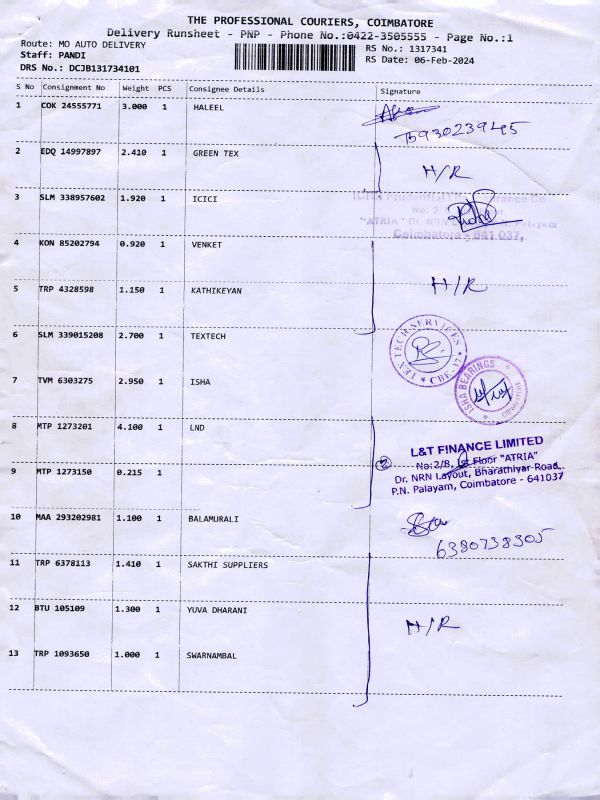 THE PROFESSIONAL COURIERS, COIMBATORE
Delivery Runsheet - PNP - Phone No.:0422-3505555 - Page No.:1
Route: MO AUTO DELIVERY
RS No.: 1317341
Staff: PANDI
RS Date: 06-Feb-2024
DRS No.: DCJB131734101
S No Consignment No Weight PCS Consignee Details Signature
1 COK 24555771 3.000 1 HALEEL
2 EDQ 14997897 2.410 1 GREEN TEX
H/R
3 SLM 338957602 1.920 1 ICICI
ICICI Prudential
"ATRIA" Dr. NRN Palayam
Coimbatore - 641 037,
4 KON 85202794 0.920 1 VENKET
5 TRP 4328598 1.150 1 KATHIKEYAN
H/R
6 SLM 339015208 2.700 1 TEXTECH
TEX TECH SERVICES * CBE-37 *
7 TVM 6303275 2.950 1 ISHA
ISHA BEARINGS
8 MTP 1273201 4.100 1 LND
L&T FINANCE LIMITED
2 No:2/8, Ist Floor "ATRIA"
9 MTP 1273150 0.215 1
Dr. NRN Layout, Bharathiyar Road,
P.N. Palayam, Coimbatore - 641037
10 MAA 293202981 1.100 1 BALAMURALI
6380738305
11 TRP 6378113 1.410 1 SAKTHI SUPPLIERS
12 BTU 105109 1.300 1 YUVA DHARANI
H/R
13 TRP 1093650 1.000 1 SWARNAMBAL